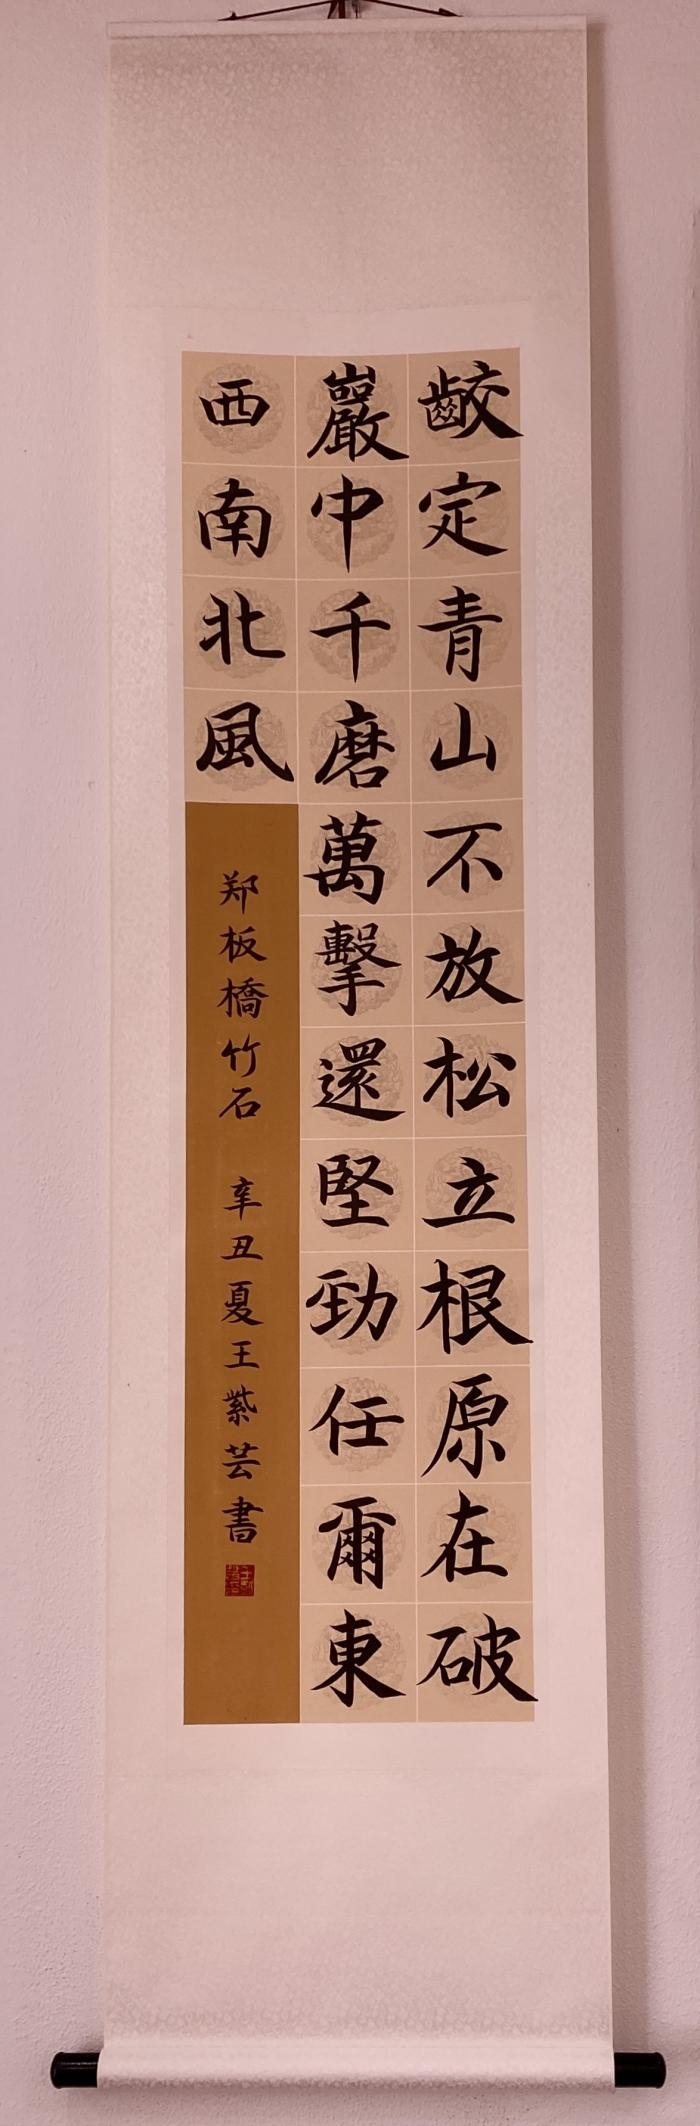 齩定青山不放松立根原在破
巖中千磨萬擊還堅勁任爾東
西南北風
郑板橋竹石 辛丑夏王紫芸書